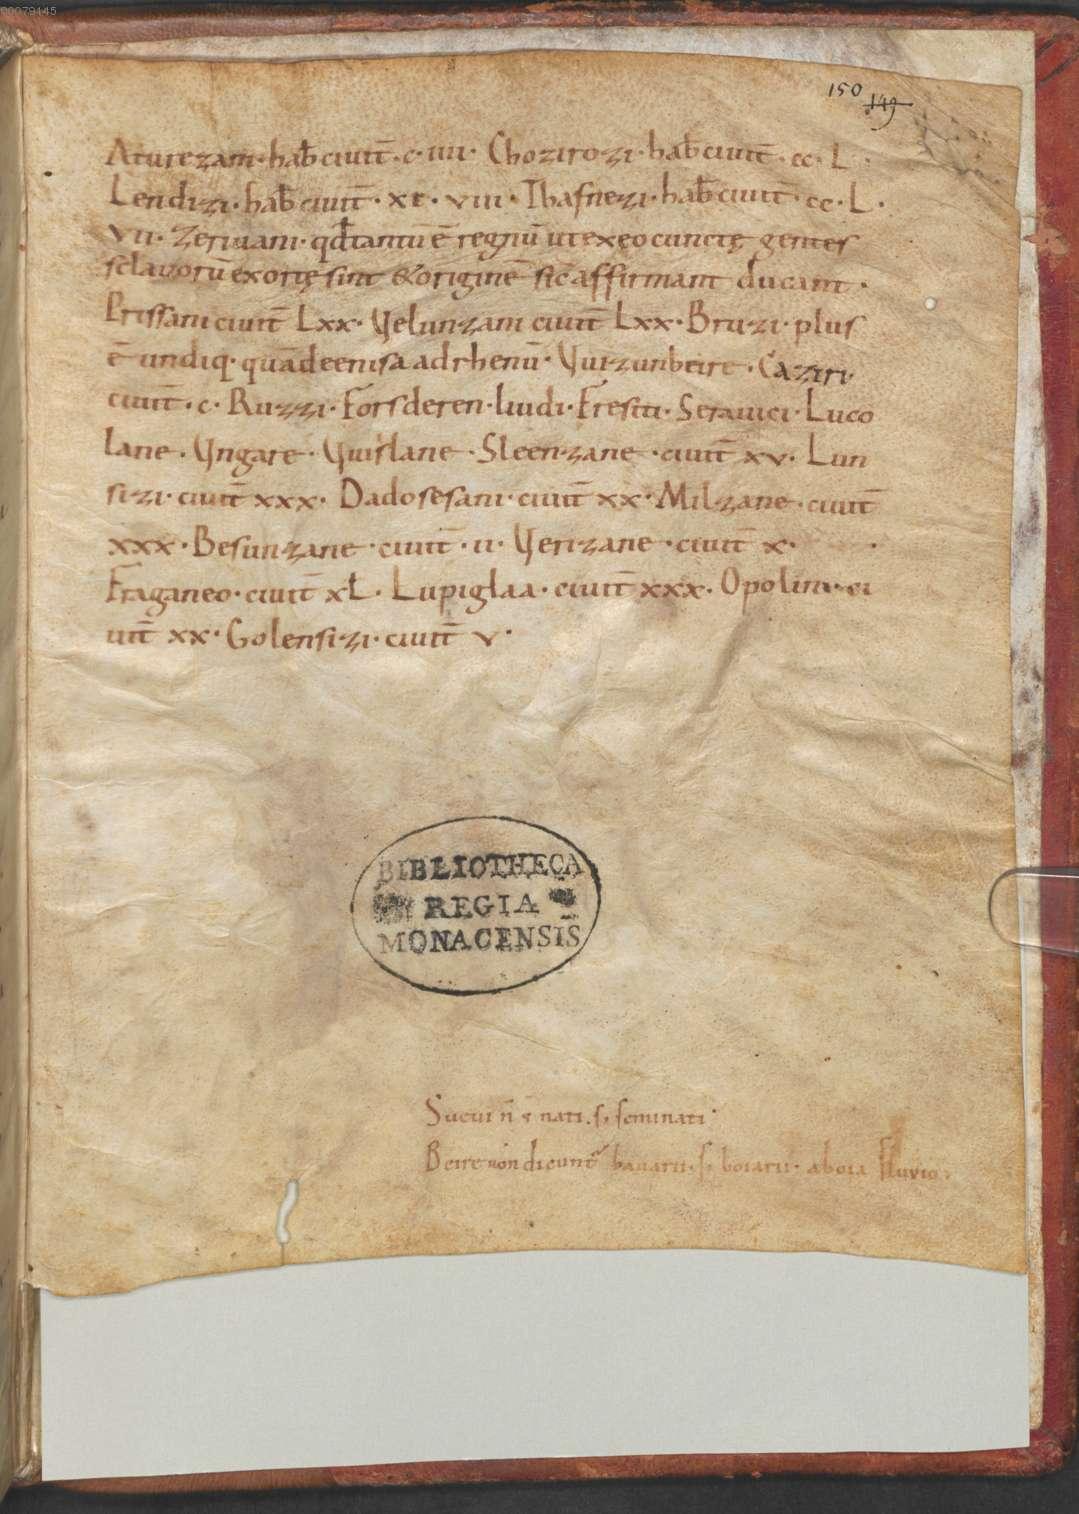 00079445
150 149
Aturezani · hab̄ ciuit̄ · c · iiii · Chozirozi · hab̄ ciuit̄ · cc · L ·
Lendizi · hab̄ ciuit̄ · xc · viii · Thafnezi · hab̄ ciuit̄ · cc · L ·
vii · Zeriuani · qd̄ tantū ē regnū ut ex eo cunctę gentes
sclavorū exortę sint & originē sic̄ affirmant ducant ·
Prissani ciuit̄ Lxx · Velunzani ciuit̄ Lxx · Bruzi · plus
ē undiq · quā de enisa ad rhenū · Vuizunbeire · Caziri ·
ciuit̄ · c · Ruzzi · Forsderen · liudi · Fresiti · Serauici · Luco
lane · Vngare · Vuislane · Sleenzane · ciuit̄ xv · Lun
sizi · ciuit̄ xxx · Dadosesani · ciuit̄ xx · Milzane · ciuit̄
xxx · Besunzane · ciuit̄ · ii · Verizane · ciuit̄ x ·
Fraganeo · ciuit̄ xL · Lupiglaa · ciuit̄ xxx · Opolini · ci
uit̄ xx · Golensizi · ciuit̄ v ·
BIBLIOTHECA
REGIA
MONACENSIS
Suevi n̄ s̄ nati · s; seminati ·
Beire non dicunt̄ bauarii · s; boiarii · aboia fluvio ·